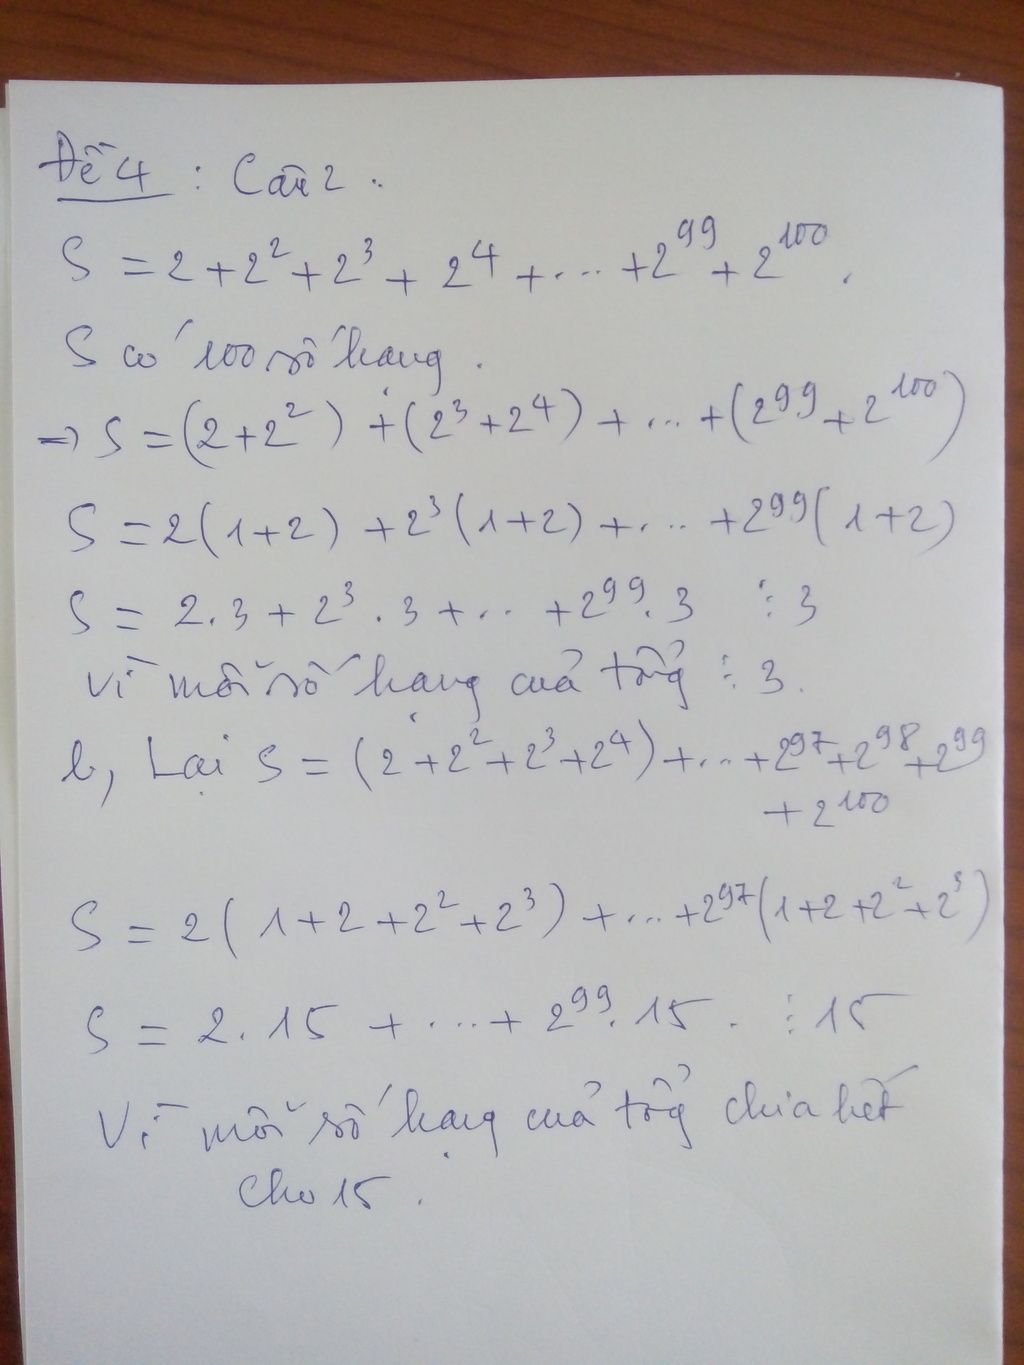 Đề 4 : Câu 2 .
S = 2 + 2² + 2³ + 2⁴ + ... + 2⁹⁹ + 2¹⁰⁰ .
S có 100 số hạng .
=> S = (2 + 2²) + (2³ + 2⁴) + ... + (2⁹⁹ + 2¹⁰⁰)
S = 2(1+2) + 2³(1+2) + ... + 2⁹⁹(1+2)
S = 2.3 + 2³.3 + ... + 2⁹⁹.3 ⋮ 3
Vì mỗi số hạng của tổng ⋮ 3.
b, Lại S = (2 + 2² + 2³ + 2⁴) + ... + 2⁹⁷ + 2⁹⁸ + 2⁹⁹
+ 2¹⁰⁰
S = 2(1 + 2 + 2² + 2³) + ... + 2⁹⁷(1 + 2 + 2² + 2³)
S = 2.15 + ... + 2⁹⁹.15 . ⋮ 15
Vì mỗi số hạng của tổng chia hết
cho 15 .